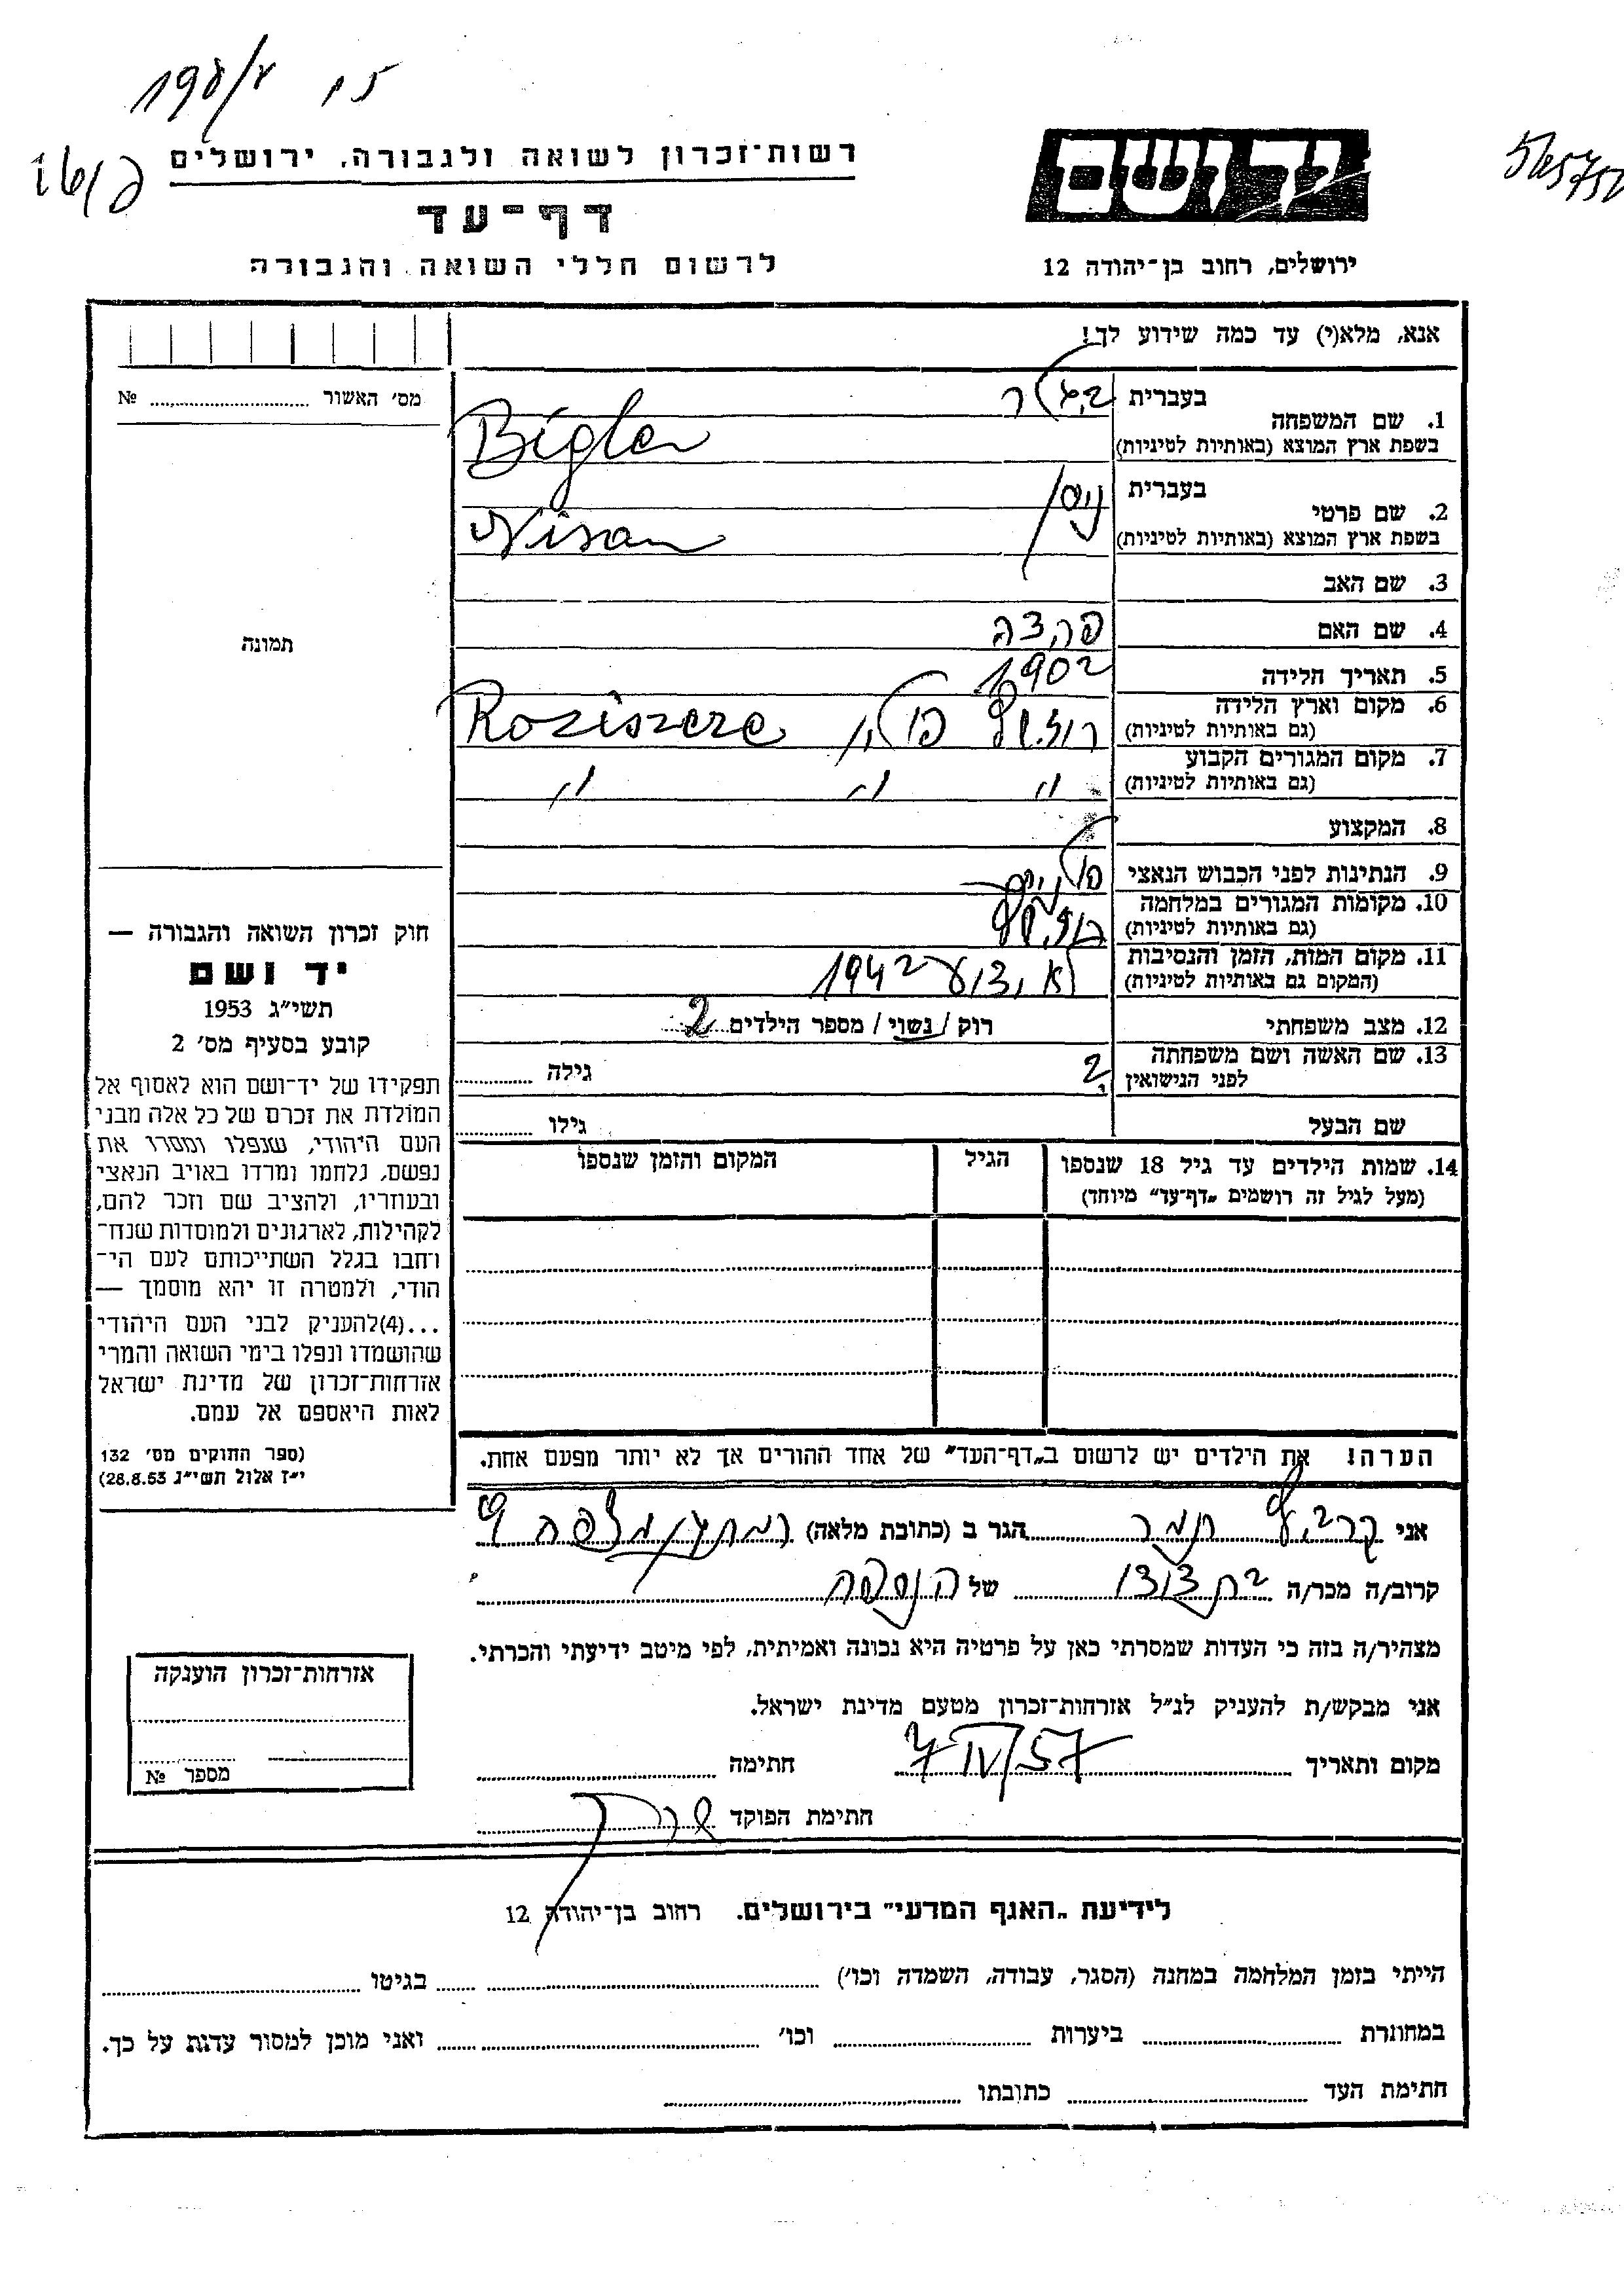 198/4 15
רשות־זכרון לשואה ולגבורה, ירושלים
דף־עד
לרשום חללי השואה והגבורה
יד ושם
ירושלים, רחוב בן־יהודה 12
אנא, מלא(י) עד כמה שידוע לך!
מס׳ האשור № ........
1. שם המשפחה בעברית ביגלר
בשפת ארץ המוצא (באותיות לטיניות) Bigler
2. שם פרטי בעברית ניסן
בשפת ארץ המוצא (באותיות לטיניות) Nisan
3. שם האב
4. שם האם
5. תאריך הלידה 1902
6. מקום וארץ הלידה פולין Roziszcze
(גם באותיות לטיניות)
7. מקום המגורים הקבוע " " "
(גם באותיות לטיניות)
8. המקצוע
9. הנתינות לפני הכבוש הנאצי פולנית
10. מקומות המגורים במלחמה
(גם באותיות לטיניות)
11. מקום המות, הזמן והנסיבות לא ידוע 1942
(המקום גם באותיות לטיניות)
12. מצב משפחתי רוק / נשוי / מספר הילדים 2
13. שם האשה ושם משפחתה ? גילה ........
לפני הנישואין
שם הבעל גילו ........
14. שמות הילדים עד גיל 18 שנספו הגיל המקום והזמן שנספו
(מעל לגיל זה רושמים „דף־עד״ מיוחד)
הערה! את הילדים יש לרשום ב„דף־העד״ של אחד ההורים אך לא יותר מפעם אחת.
תמונה
חוק זכרון השואה והגבורה —
יד ושם
תשי״ג 1953
קובע בסעיף מס׳ 2
תפקידו של יד־ושם הוא לאסוף אל
המולדת את זכרם של כל אלה מבני
העם היהודי, שנפלו ומסרו את
נפשם, נלחמו ומרדו באויב הנאצי
ובעוזריו, ולהציב שם וזכר להם,
לקהילות, לארגונים ולמוסדות שנח־
רחבו בגלל השתייכותם לעם הי־
הודי, ולמטרה זו יהא מוסמך —
...(4)להעניק לבני העם היהודי
שהושמדו ונפלו בימי השואה והמרי
אזרחות־זכרון של מדינת ישראל
לאות היאספם אל עמם.
(ספר החוקים מס׳ 132
י״ז אלול תשי״ג 28.8.53)
אני תמר הגר ב (כתובת מלאה) רמתגן
קרוב/ה מכר/ה בת דודו של הנספה
מצהיר/ה בזה כי העדות שמסרתי כאן על פרטיה היא נכונה ואמיתית, לפי מיטב ידיעתי והכרתי.
אני מבקש/ת להעניק לנ״ל אזרחות־זכרון מטעם מדינת ישראל.
מקום ותאריך 7 IV/57 חתימה ........
חתימת הפוקד
אזרחות־זכרון הוענקה
מספר №
לידיעת „האגף המדעי״ בירושלים. רחוב בן־יהודה 12
הייתי בזמן המלחמה במחנה (הסגר, עבודה, השמדה וכו׳) ........ בגיטו ........
במחתרת ........ ביערות ........ וכו׳ ........ ואני מוכן למסור עדות על כך.
חתימת העד ........ כתובתו ........